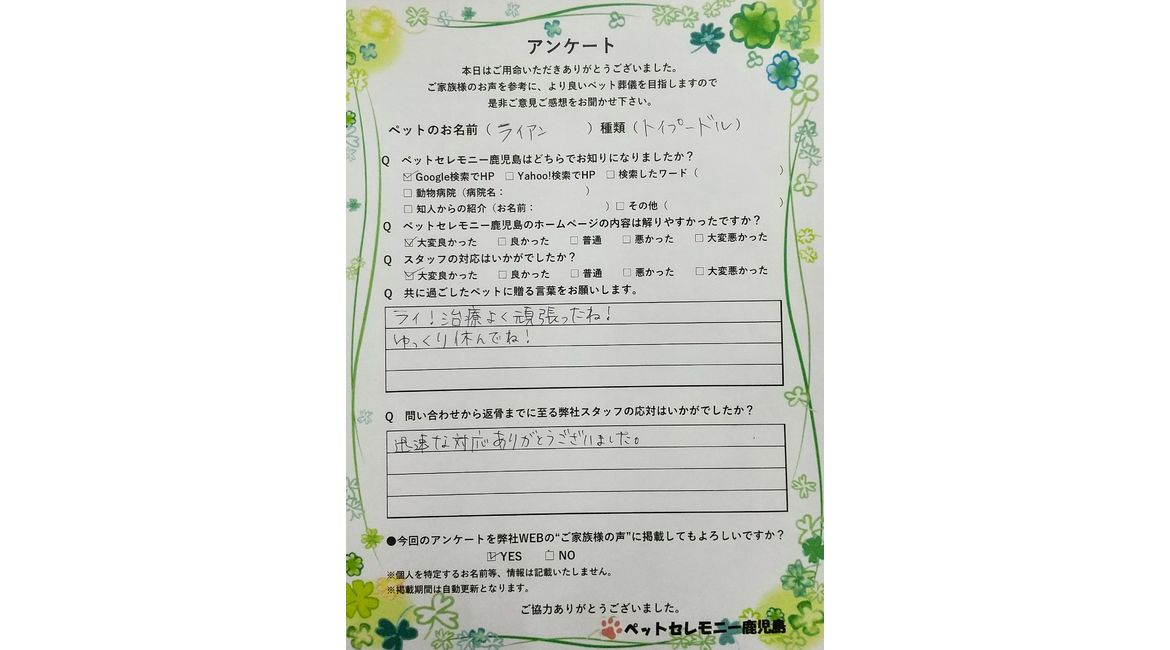 アンケート
本日はご用命いただきありがとうございました。
ご家族様のお声を参考に、より良いペット葬儀を目指しますので
是非ご意見ご感想をお聞かせ下さい。
ペットのお名前（ライアン　　）種類（トイプードル）
Q　ペットセレモニー鹿児島はどちらでお知りになりましたか？
☑Google検索でHP　□Yahoo!検索でHP　□検索したワード（　　　）
□動物病院（病院名：　　　）
□知人からの紹介（お名前：　　　）□その他（　　　）
Q　ペットセレモニー鹿児島のホームページの内容は解りやすかったですか？
☑大変良かった　□良かった　□普通　□悪かった　□大変悪かった
Q　スタッフの対応はいかがでしたか？
☑大変良かった　□良かった　□普通　□悪かった　□大変悪かった
Q　共に過ごしたペットに贈る言葉をお願いします。
ライ！治療よく頑張ったね！
ゆっくり休んでね！
Q　問い合わせから返骨までに至る弊社スタッフの応対はいかがでしたか？
迅速な対応ありがとうございました。
●今回のアンケートを弊社WEBの“ご家族様の声”に掲載してもよろしいですか？
☑YES　□NO
※個人を特定するお名前等、情報は記載いたしません。
※掲載期間は自動更新となります。
ご協力ありがとうございました。
ペットセレモニー鹿児島